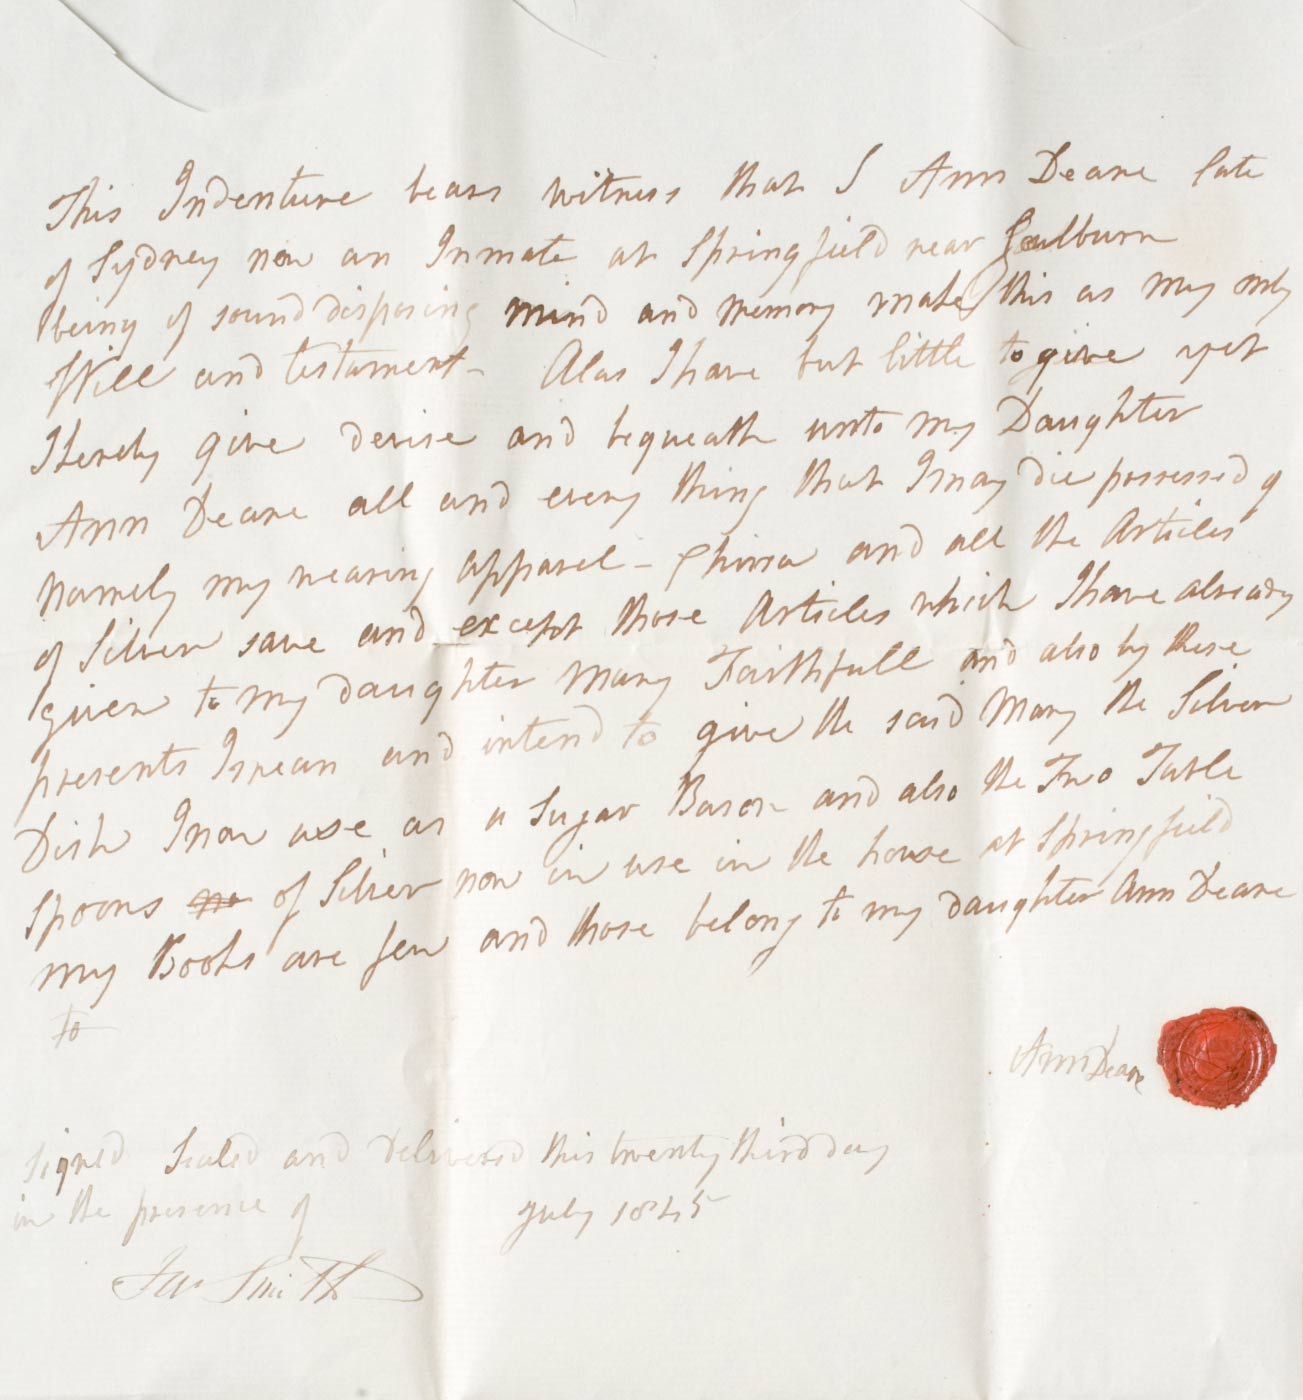 This Indenture bears witness that I Ann Deane late
of Sydney now an Inmate at Springfield near Goulburn
being of sound disposing mind and memory make this as my only
Will and testament - Alas I have but little to give yet
I hereby give devise and bequeath unto my Daughter
Ann Deane all and every thing that I may die possessed of
namely my wearing apparel - China and all the Articles
of Silver save and except those Articles which I have already
given to my daughter Mary Faithfull and also by these
presents I mean and intend to give the said Mary the Silver
Dish I now use as a Sugar Bason and also the Two Table
Spoons of Silver now in use in the house at Springfield
my Books are few and those belong to my daughter Ann Deane
to
Ann Deane
Signed Sealed and Delivered this twenty third day
in the presence of July 1845
Jas Smith